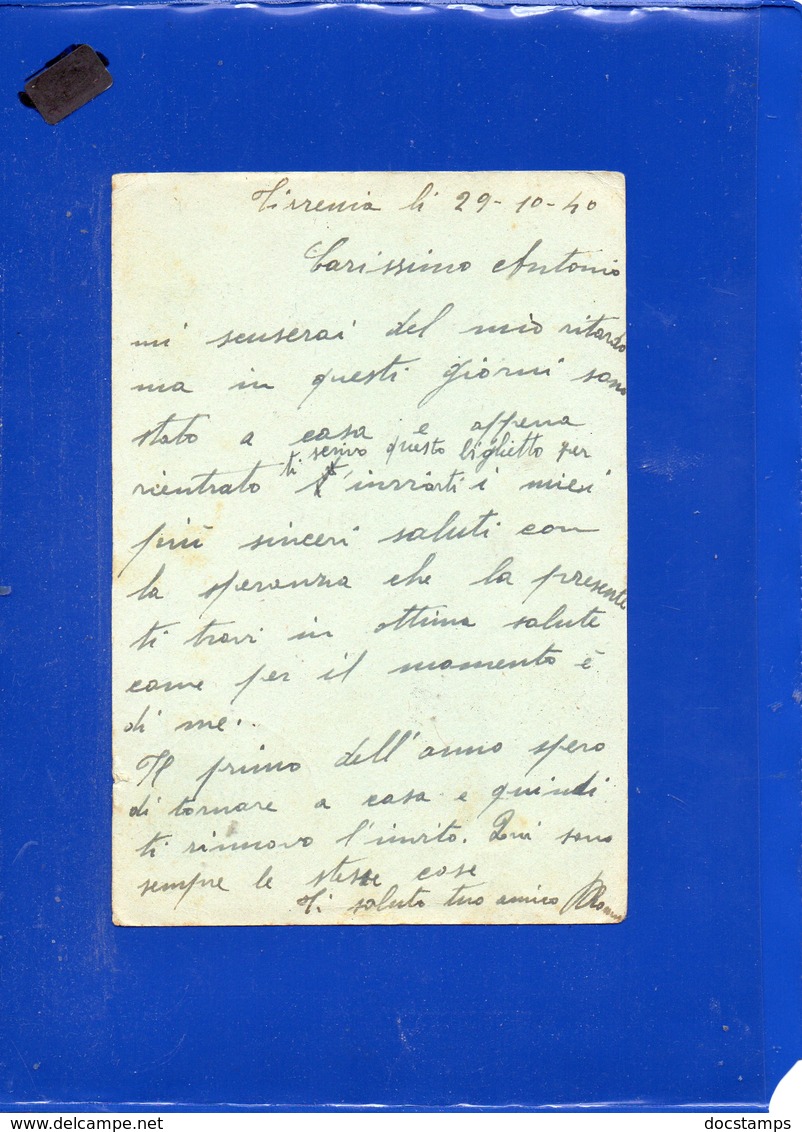 Tirrenia li 29-10-40
Carissimo Antonio
mi scuserai del mio ritardo
ma in questi giorni sono
stato a casa e appena
ti scrivo questo biglietto per
rientrato t'inviarti i miei
più sinceri saluti con
la speranza che la presente
ti trovi in ottima salute
come per il momento è
di me..
Il primo dell'anno spero
di tornare a casa e quindi
ti rinnovo l'invito. Qui sono
sempre le stesse cose
Ti saluto tuo amico
docstamps